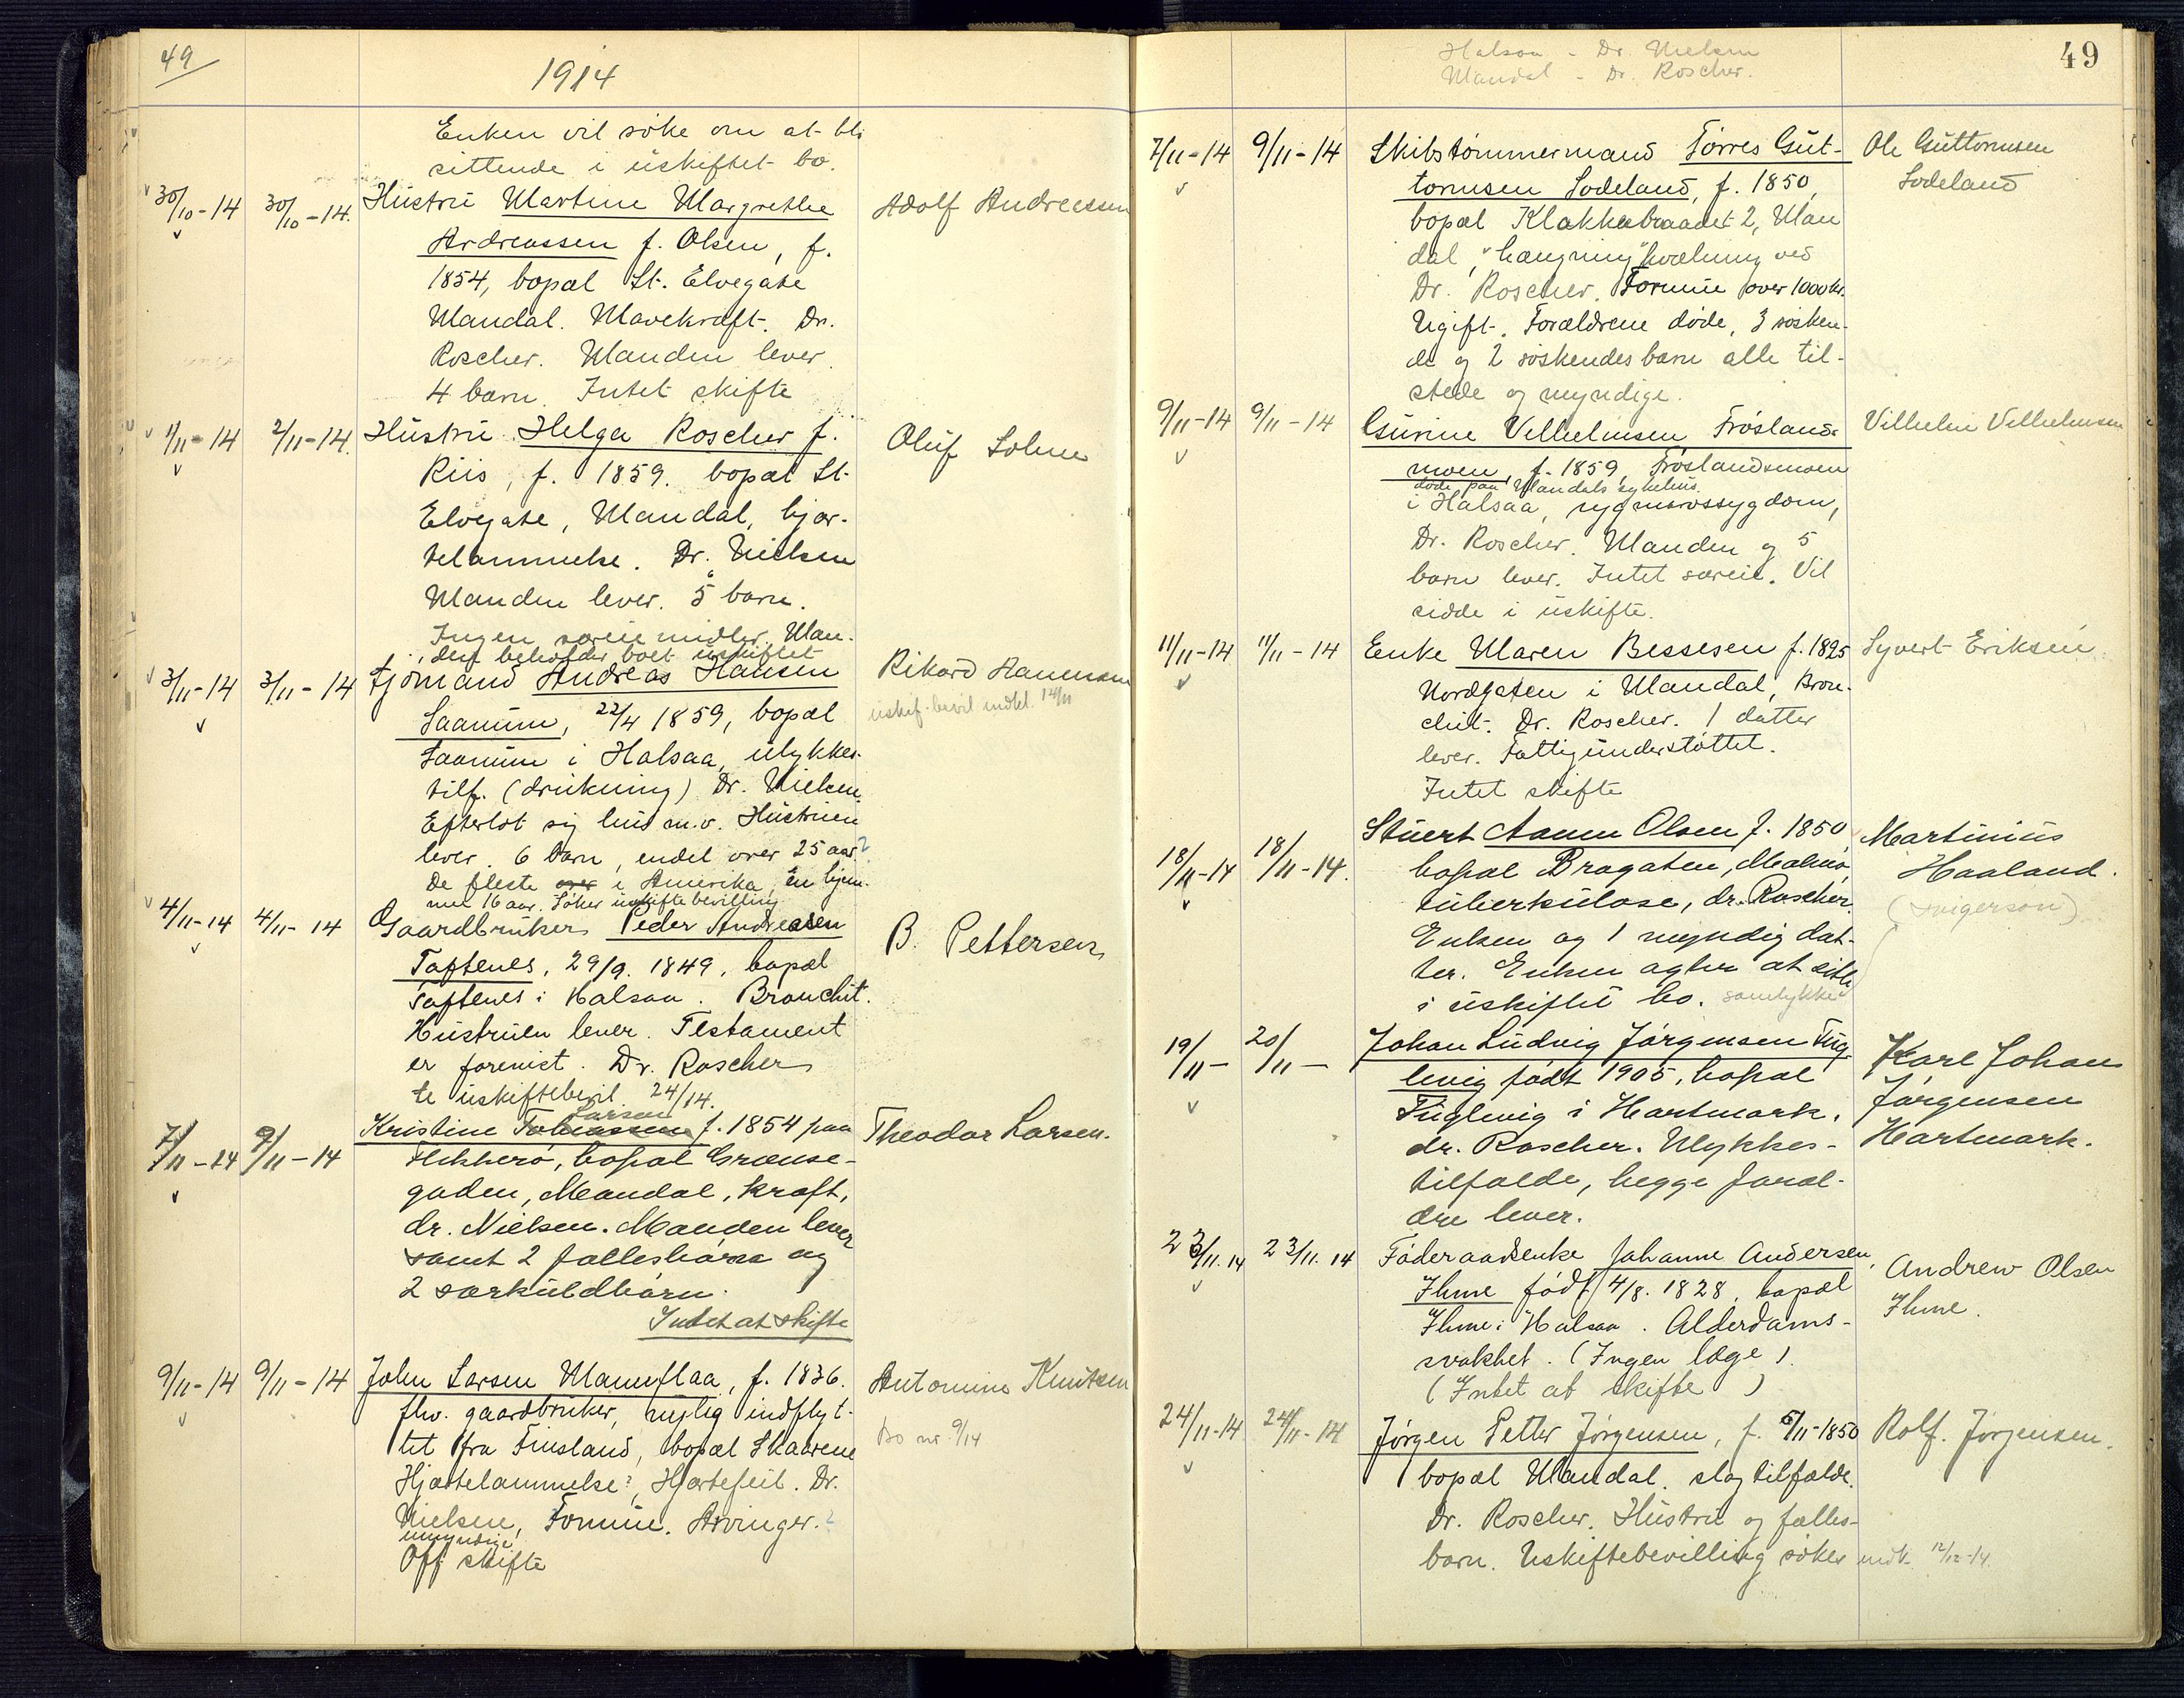 49
1914
Enken vil söke om at bli
sittende i uskiftet bo.
30/10-14 30/10-14. Hustru Martine Margrethe Adolf Andreessen
Andreassen f. Olsen, f.
1854, bopæl St. Elvegate
Mandal. Mavekræft. Dr.
Roscher. Manden lever.
4 barn. Intet skifte
1/11-14 2/11-14. Hustru Helga Roscher f. Oluf Solum
Riis, f. 1859. bopæl St.
Elvegate, Mandal, hjer-
telammelse. Dr. Nielsen
Manden lever. 5 barn.
Ingen særeie midler. Man-
den beholder boet uskiftet
3/11-14 3/11-14 Sjömand Andreas Hansen Rikard Hanensen
Saanum, 22/4 1859, bopæl uskif. bevil indkl. 14/11
Saanum i Halsaa, ulykkes-
tilf. (drukning) Dr. Nielsen.
Efterlot sig hus m.v. Hustruen
lever. 6 barn, endel over 25 aar?
De fleste over i Amerika. En hjem-
me 16 aar. Söker uskiftebevilling
4/11-14 4/11-14 Gaardbruker Peder Andreasen B. Pettersen
Toftenes, 29/9. 1849, bopæl
Toftenes i Halsaa. Bronchit.
Hustruen lever. Testament
er forevist. Dr. Roscher
te uskiftebevil. 24/14.
Larsen
7/11-14 9/11-14 Kristine Tobiassen f. 1854 paa Theodor Larsen.
Flekkerö, bopæl Grænse-
gaden, Mandal, kræft,
dr. Nielsen. Manden lever
samt 2 fællesbarn og
2 særkuldbarn.
Intet at skifte
9/11-14 9/11-14 John Larsen Mannflaa, f. 1836. Antomine Knutsen
fhv. gaardbruker, nylig indflyt- Bo nr. 9/14
tet fra Finsland, bopæl Skaarene
Hjærtelammelse?, Hjærtefeil. Dr.
Nielsen, Formue. Arvinger.?
umyndige
Off skifte
Halsaa - Dr. Nielsen
Mandal - Dr. Roscher.
49
7/11-14 9/11-14 Skibstömmermand Törres Gut- Ole Guttormsen
tormsen Lodeland, f. 1850, Lodeland
bopæl Klokkebraadet 2, Man
dal, "hængning" kvælning ved
Dr. Roscher. Formue over 1000 kr.
Ugift. Forældrene döde, 3 sösken-
de og 2 söskendesbarn alle til-
stede og myndige.
9/11-14 9/11-14 Gurine Velhelmsen Fröslands- Vilhelm Vilhelmsen
moen, f. 1859, Fröslandsmoen
döde paa Mandals sykehus.
i Halsaa, rygmarvssygdom,
Dr. Roscher. Manden og 5
barn lever. Intet særeie. Vil
sidde i uskifte.
11/11-14 11/11-14 Enke Maren Bessesen f. 1825 Syvert Eriksen
Nordgaten i Mandal, Bron-
chit. Dr. Roscher. 1 datter
lever. Fattigunderstöttet.
Intet skifte
18/11-14 18/11-14. Stuert Aanen Olsen f. 1850 Martinius
bopæl Brogaten, Malmö, Haaland.
tuberkulose, dr. Roscher. (svigersön)
Enken og 1 myndig dat-
ter. Enken agter at sitte
i uskiftet bo. samtykke
19/11- 20/11- Johan Ludvig Jörgensen Fug- Karl Johan
levig födt 1905, bopæl Jörgensen
Fuglevig i Hartmark, Hartmark.
dr. Roscher. Ulykkes-
tilfælde, begge foræl-
dre lever.
23/11.14 23/11.14 Föderaadsenke Johanne Andersen, Andrew Olsen
Ihme födt 4/8. 1828, bopæl Ihme.
Ihme i Halsaa. Alderdoms-
svakhet. (Ingen læge).
(Intet at skifte)
24/11-14 24/11-14 Jörgen Petter Jörgensen, f. 5/11-1850 Rolf. Jörgensen.
bopæl Mandal. slagtilfælde.
Dr. Roscher. Hustru og fælles-
barn. Uskiftebevilling söker indk. 12/12-14.